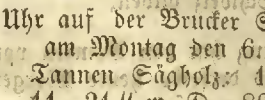 Uhr auf der Brucker
am Montag den 6.
Tannen Sägholz: